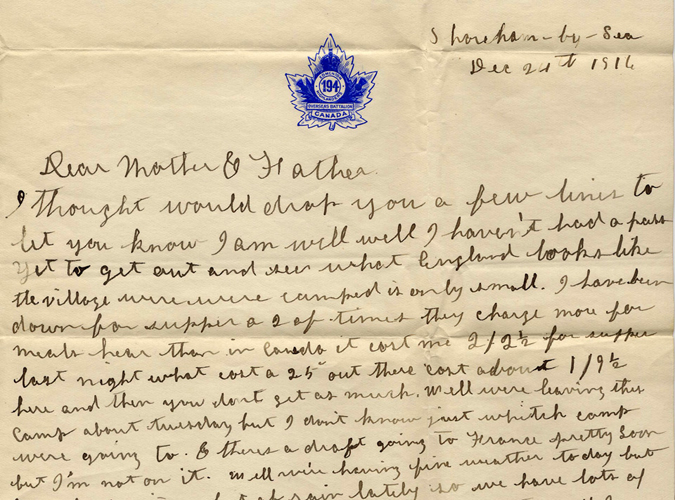 Shoreham-by-Sea
Dec 24th 1916
194
OVERSEAS BATTALION
CANADA
Dear Mother & Father.
I thought would drop you a few lines to
let you know I am well well I haven't had a pass
yet to get out and see what England looks like
the village were were camped is only small. I have been
down for supper a 2 of times they charge more for
meals hear than in Canada it cost me 2/2½ for supper
last night what cost a 25 out there cost about 1/9½
here and then you dont get as much. Well were leaving this
camp about tuesday but I don't know just whitch camp
were going to. & theres a draft going to France pretty soon
but I'm not on it. Well we're having fine weather to day but
of rain lately so we have lots of